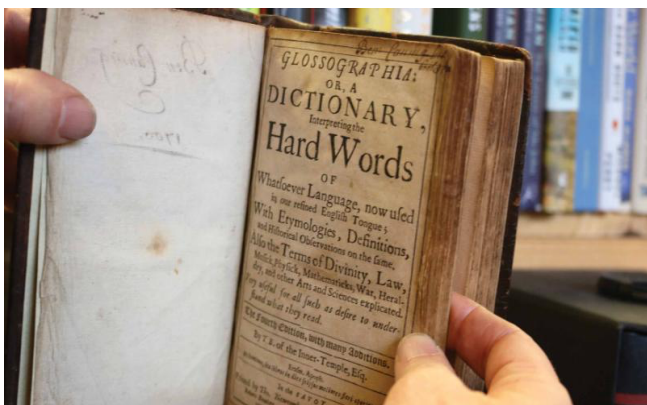 GLOSSOGRAPHIA:
OR, A
DICTIONARY,
Interpreting the
Hard Words
OF
Whatsoever Language, now used
in our refined English Tongue;
With Etymologies, Definitions,
and Historical Observations on the same.
Also the Terms of Divinity, Law,
Physick, Mathematicks, War, Heral-
dry, and other Arts and Sciences explicated.
Very useful for all such as desire to under-
stand what they read.
The Fourth Edition, with many Additions.
By T. B. of the Inner-Temple, Esq.
In the SAVOY
by Tho.
1700